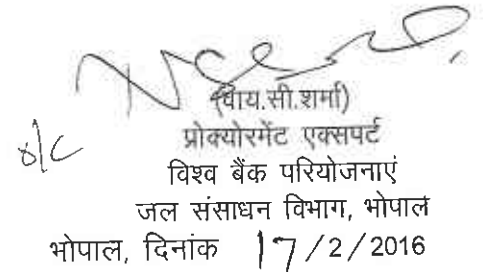 (वाय.सी.शर्मा)
o/c
प्रोक्योरमेंट एक्सपर्ट
विश्व बैंक परियोजनाएं
जल संसाधन विभाग, भोपाल
भोपाल, दिनांक 17/2/2016